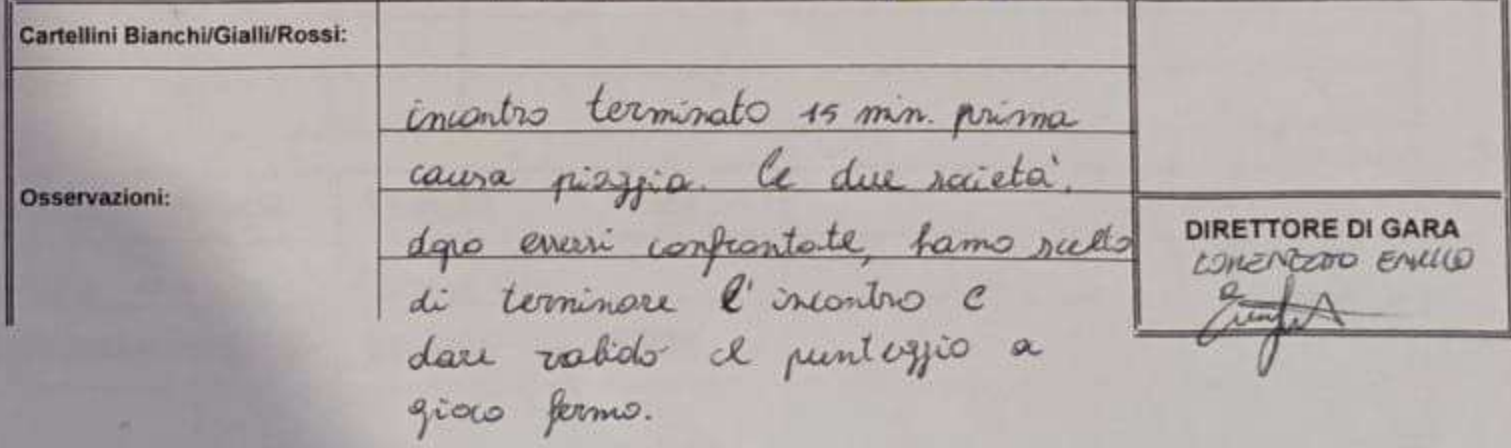 Cartellini Bianchi/Gialli/Rossi:
Osservazioni:
incontro terminato 15 min. prima
causa pioggia. Le due società,
dopo essersi confrontate, hanno scelto
di terminare l'incontro e
dare valido il punteggio a
gioco fermo.
DIRETTORE DI GARA